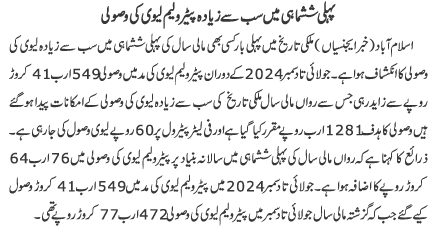 پہلی ششماہی میں سب سے زیادہ پیٹرولیم لیوی کی وصولی
اسلام آباد (خبر ایجنسیاں) ملکی تاریخ میں پہلی بار کسی بھی مالی سال کی پہلی ششماہی میں سب سے زیادہ لیوی کی
وصولی کا انکشاف ہوا ہے۔ جولائی تا دسمبر 2024 کے دوران پیٹرولیم لیوی کی مد میں وصولی 549 ارب 41 کروڑ
روپے سے زاید رہی جس سے رواں مالی سال ملکی تاریخ کی سب سے زیادہ لیوی کے امکانات پیدا ہو گئے
ہیں وصولی کا ہدف 1281 ارب روپے مقرر کیا گیا ہے اور فی لیٹر پیٹرول پر 60 روپے لیوی وصول کی جا رہی ہے۔
ذرائع کا کہنا ہے کہ رواں مالی سال کی پہلی ششماہی میں سالانہ بنیاد پر پیٹرولیم لیوی کی وصولی میں 76 ارب 64
کروڑ روپے کا اضافہ ہوا ہے۔ جولائی تا دسمبر 2024 میں پیٹرولیم لیوی کی مد میں 549 ارب 41 کروڑ وصول
کیے گئے جب کہ گزشتہ مالی سال جولائی تا دسمبر میں پیٹرولیم لیوی کی وصولی 472 ارب 77 کروڑ روپے تھی۔